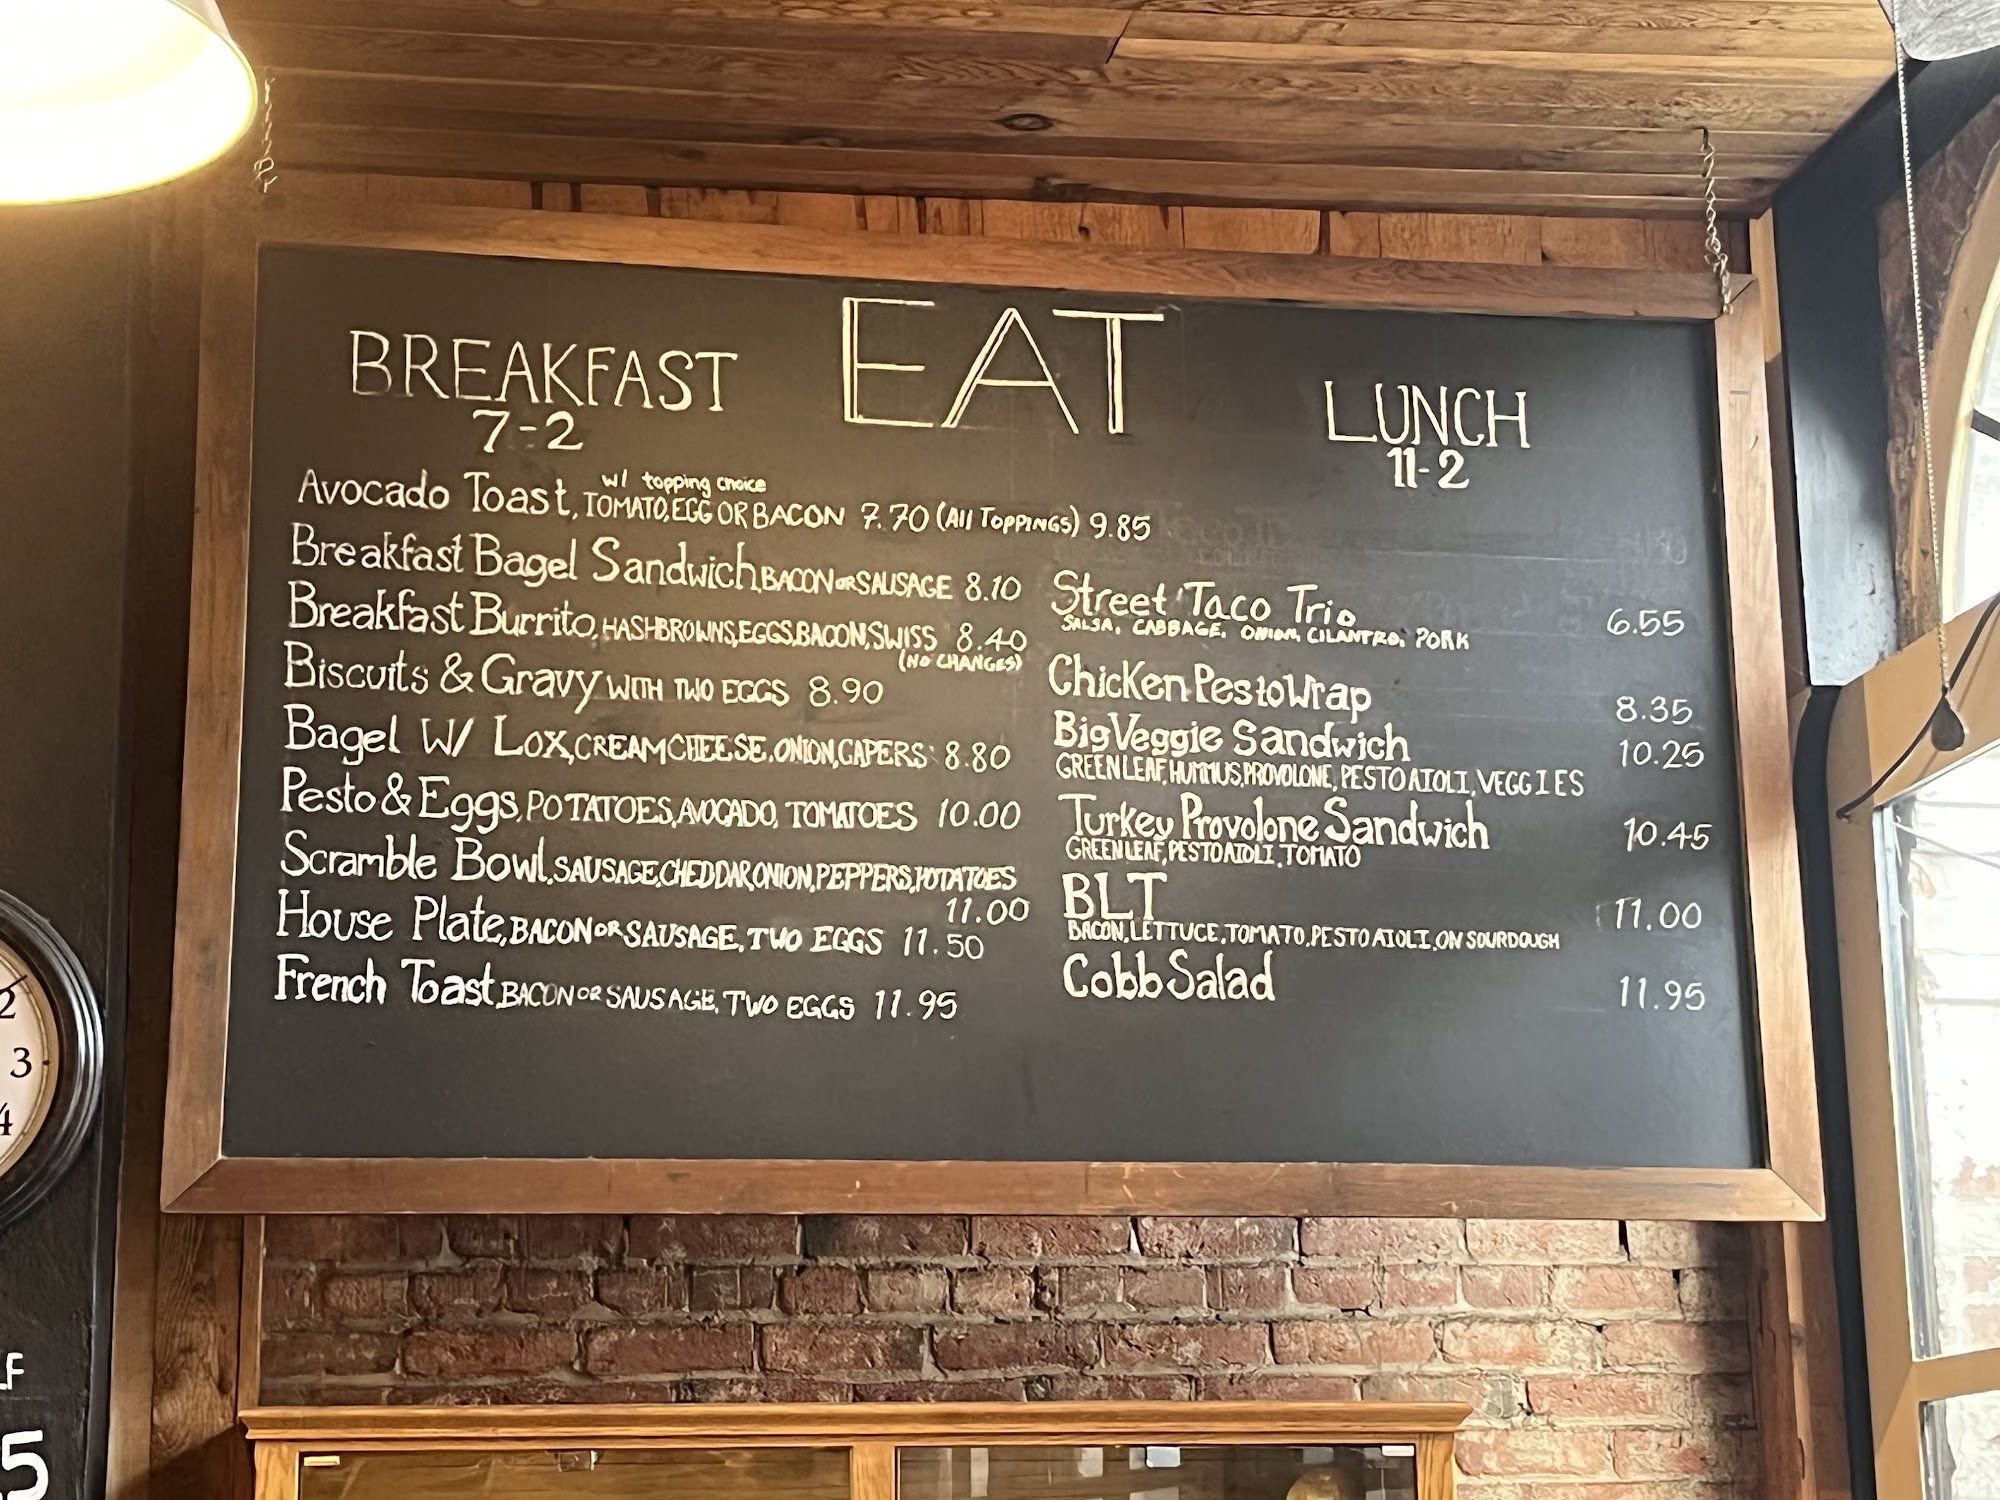 EAT
BREAKFAST
7-2
w/ topping choice
Avocado Toast, TOMATO, EGG OR BACON 7.70 (All Toppings) 9.85
Breakfast Bagel Sandwich, BACON OR SAUSAGE 8.10
Breakfast Burrito, HASHBROWNS, EGGS, BACON, SWISS 8.40
(NO CHANGES)
Biscuits & Gravy WITH TWO EGGS 8.90
Bagel W/ Lox, CREAM CHEESE, ONION, CAPERS 8.80
Pesto & Eggs, POTATOES, AVOCADO, TOMATOES 10.00
Scramble Bowl, SAUSAGE, CHEDDAR, ONION, PEPPERS, POTATOES
11.00
House Plate, BACON OR SAUSAGE, TWO EGGS 11.50
French Toast, BACON OR SAUSAGE, TWO EGGS 11.95
LUNCH
11-2
Street Taco Trio 6.55
SALSA, CABBAGE, ONION, CILANTRO, PORK
Chicken Pesto Wrap 8.35
Big Veggie Sandwich 10.25
GREEN LEAF, HUMMUS, PROVOLONE, PESTO AIOLI, VEGGIES
Turkey Provolone Sandwich 10.45
GREEN LEAF, PESTO AIOLI, TOMATO
BLT 11.00
BACON, LETTUCE, TOMATO, PESTO AIOLI, ON SOURDOUGH
Cobb Salad 11.95
2
3
4